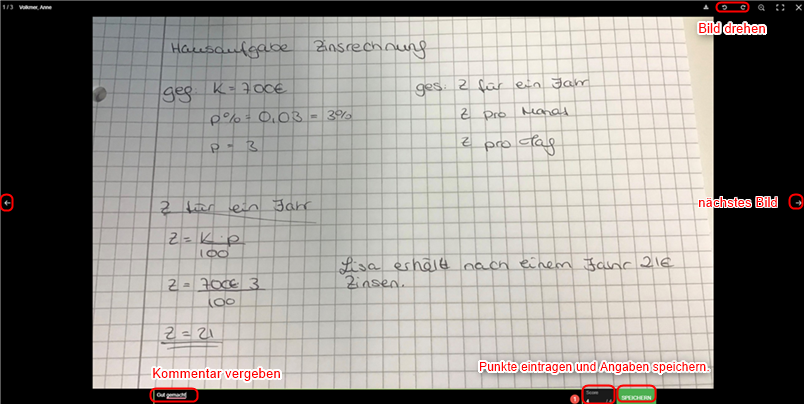 1 / 3 Volkmer, Anne
Bild drehen
Hausaufgabe Zinsrechnung
geg: K = 700€
ges: Z für ein Jahr
p% = 0,03 = 3%
Z pro Monat
p = 3
Z pro Tag
nächstes Bild
Z für ein Jahr
Z = K · p
100
Lisa erhält nach einem Jahr 21€
Zinsen.
Z = 700€ 3
100
Z = 21
Kommentar vergeben
Punkte eintragen und Angaben speichern.
Gut gemacht
Score
4
SPEICHERN